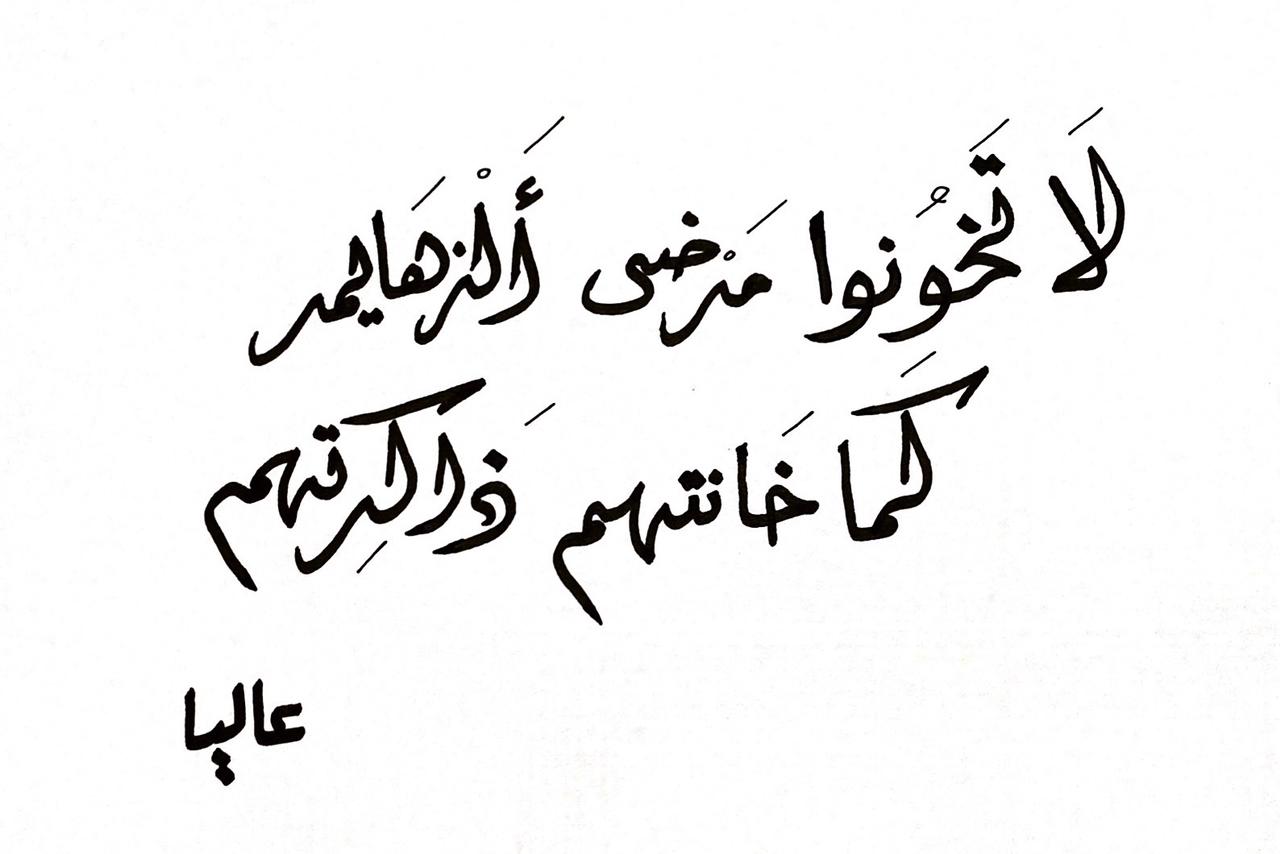 لَا تَخُونوا مَرْضى أَلْزهَايمر
كَما خَانتهم ذَاكِرتهم
عاليا